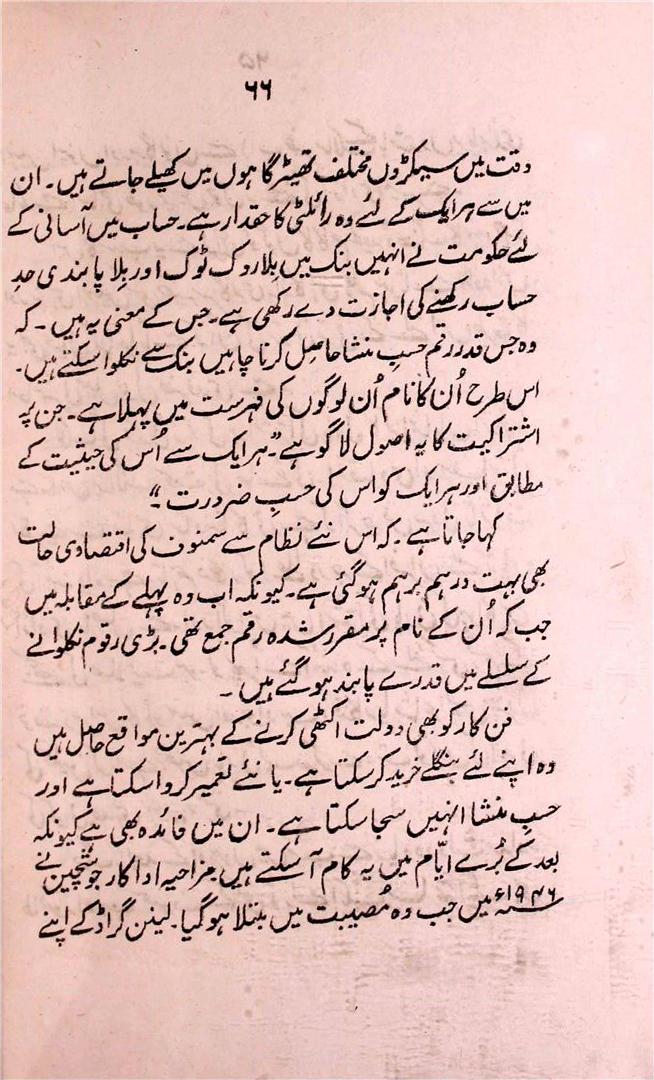 ۶۶
وقت میں سینکڑوں مختلف تھیٹر گاہوں میں کھیلے جاتے ہیں۔ ان
میں سے ہر ایک کے لئے وہ رائلٹی کا حقدار ہے۔ حساب میں آسانی کے
لئے حکومت نے انہیں بنک میں بِلا روک ٹوک اور بِلا پابندی حدِ
حساب رکھنے کی اجازت دے رکھی ہے۔ جس کے معنی یہ ہیں۔ کہ
وہ جس قدر رقم حسبِ منشا حاصل کرنا چاہیں بنک سے نکلوا سکتے ہیں۔
اس طرح اُن کا نام اُن لوگوں کی فہرست میں پہلا ہے۔ جن پر
اشتراکیت کا یہ اصول لاگو ہے "ہر ایک سے اُس کی حیثیت کے
مطابق اور ہر ایک کو اس کی حسبِ ضرورت۔"
کہا جاتا ہے۔ کہ اس نئے نظام سے سمنوف کی اقتصادی حالت
بھی بہت درہم برہم ہو گئی ہے۔ کیونکہ اب وہ پہلے کے مقابلہ میں
جب کہ اُن کے نام پر مقرر شدہ رقم جمع تھی۔ بڑی رقوم نکلوانے
کے سلسلے میں قدرے پابند ہو گئے ہیں۔
فن کار کو بھی دولت اکٹھی کرنے کے بہترین مواقع حاصل ہیں
وہ اپنے لئے بنگلے خرید کر سکتا ہے۔ یا نئے تعمیر کروا سکتا ہے اور
حسبِ منشا انہیں سجا سکتا ہے۔ ان میں فائدہ بھی ہے کیونکہ
بعد کے بُرے ایّام میں یہ کام آ سکتے ہیں۔ مزاحیہ اداکار جوشچین نے
۱۹۴۶ء میں جب وہ مُصیبت میں مبتلا ہو گیا۔ لینن گراڈ کے اپنے